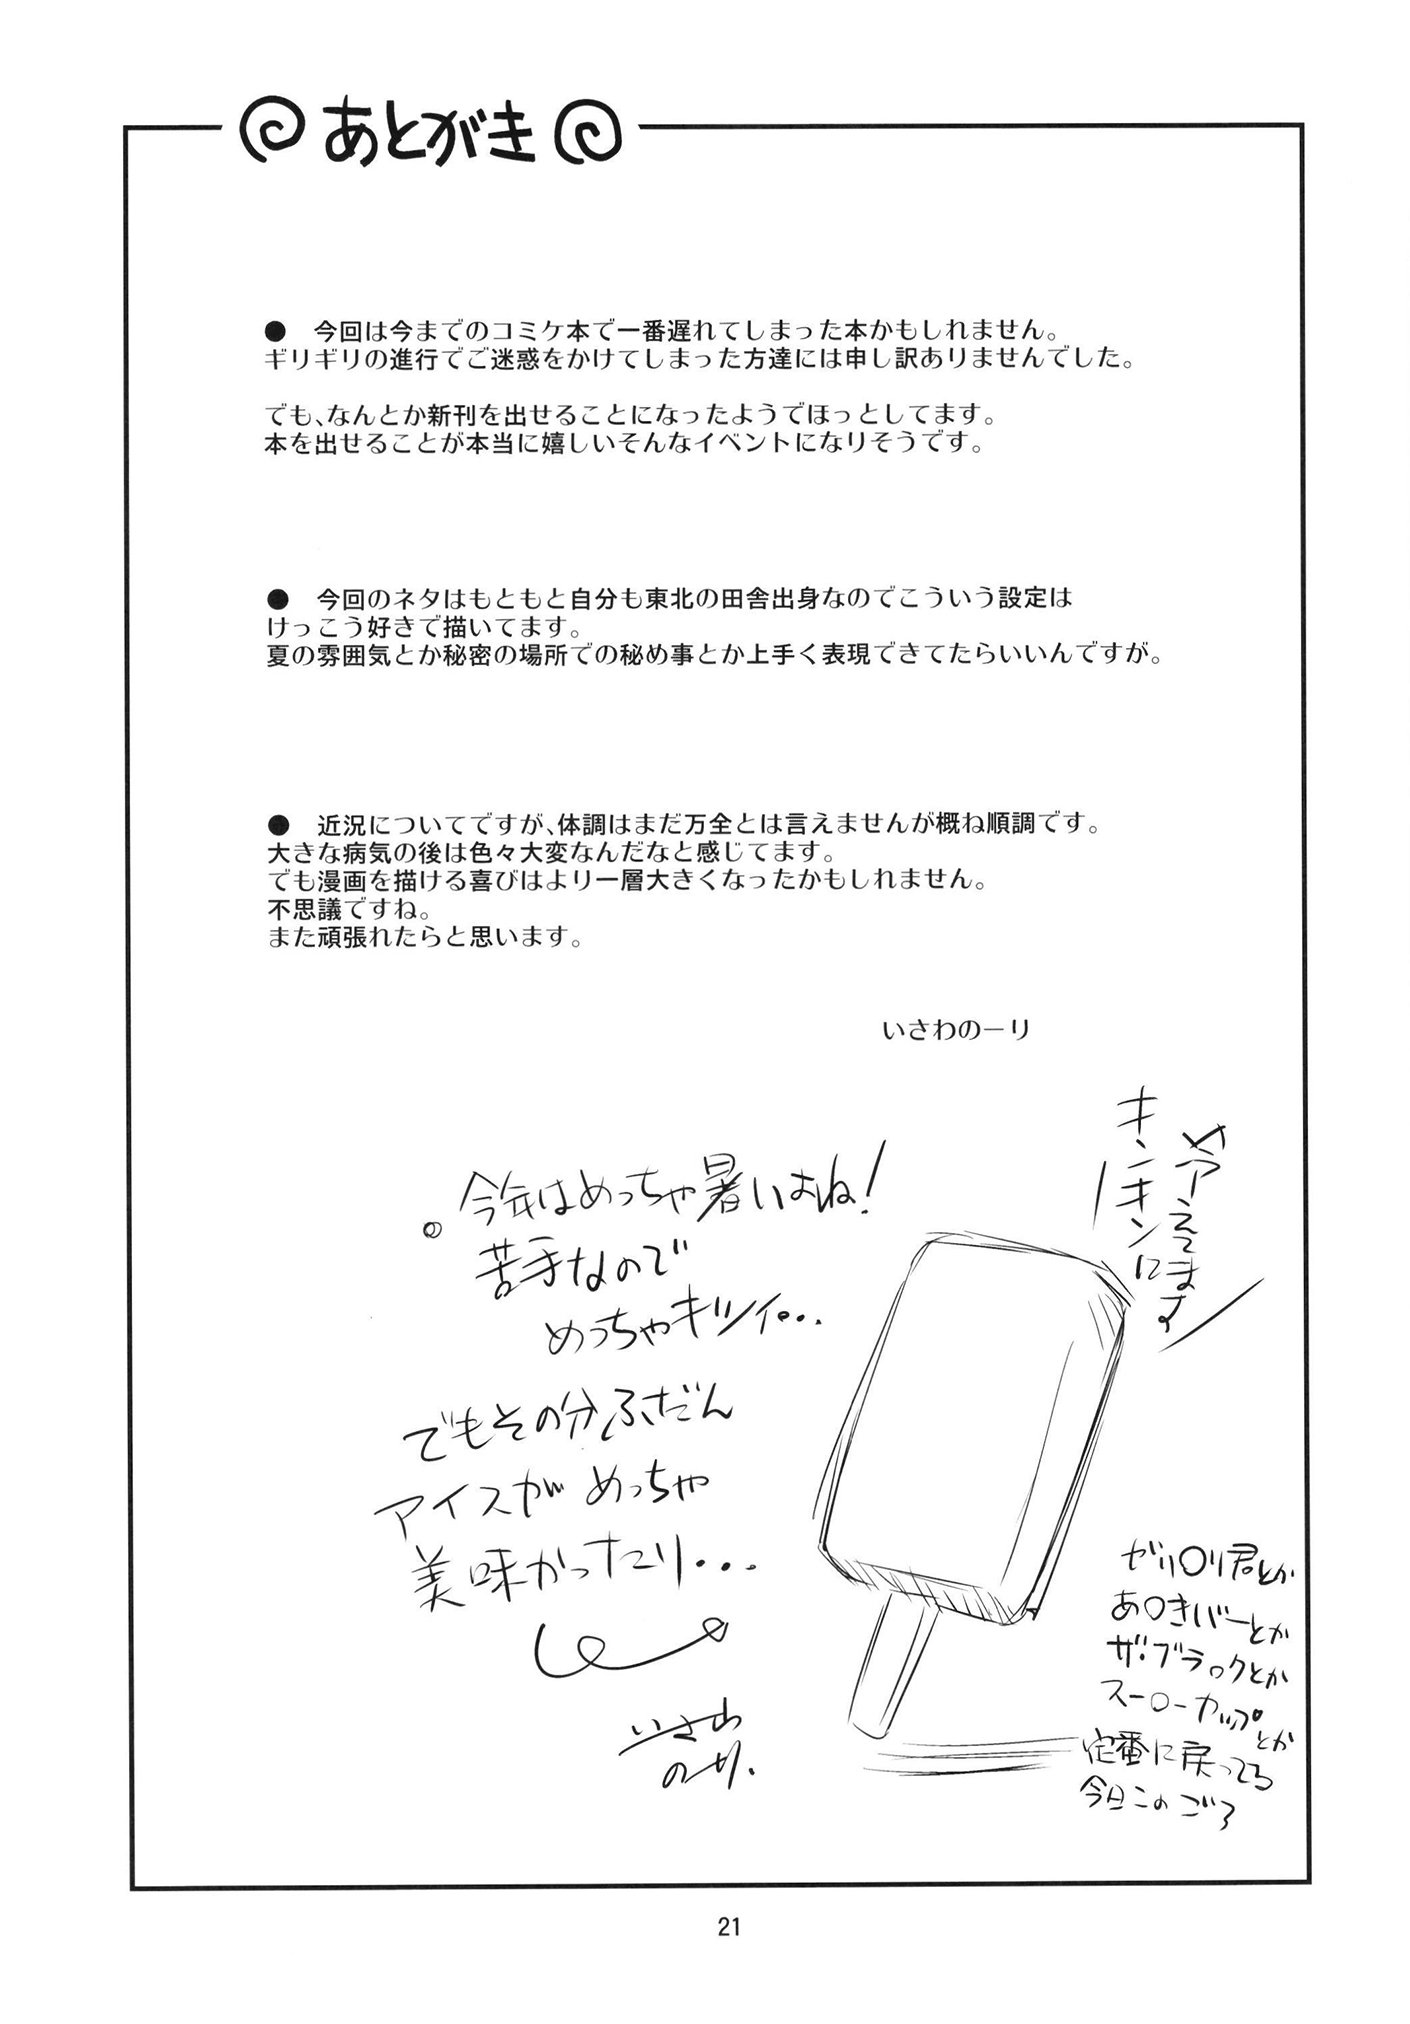 あとがき
● 今回は今までのコミケ本で一番遅れてしまった本かもしれません。
ギリギリの進行でご迷惑をかけてしまった方達には申し訳ありませんでした。
でも、なんとか新刊を出せることになったようでほっとしてます。
本を出せることが本当に嬉しいそんなイベントになりそうです。
● 今回のネタはもともと自分も東北の田舎出身なのでこういう設定は
けっこう好きで描いてます。
夏の雰囲気とか秘密の場所での秘め事とか上手く表現できてたらいいんですが。
● 近況についてですが、体調はまだ万全とは言えませんが概ね順調です。
大きな病気の後は色々大変なんだなと感じてます。
でも漫画を描ける喜びはより一層大きくなったかもしれません。
不思議ですね。
また頑張れたらと思います。
いさわのーり
キンキンに
冷えてます
今年はめっちゃ暑いよね!
苦手なので
めっちゃキツイ...
でもその分ふだん
アイスがめっちゃ
美味かったり...
いさわ
のーり.
ガリ○リ君とか
あ○きバーとか
ザ・ブラックとか
スー○ーカップとか
定番に戻ってる
今日このごろ
21